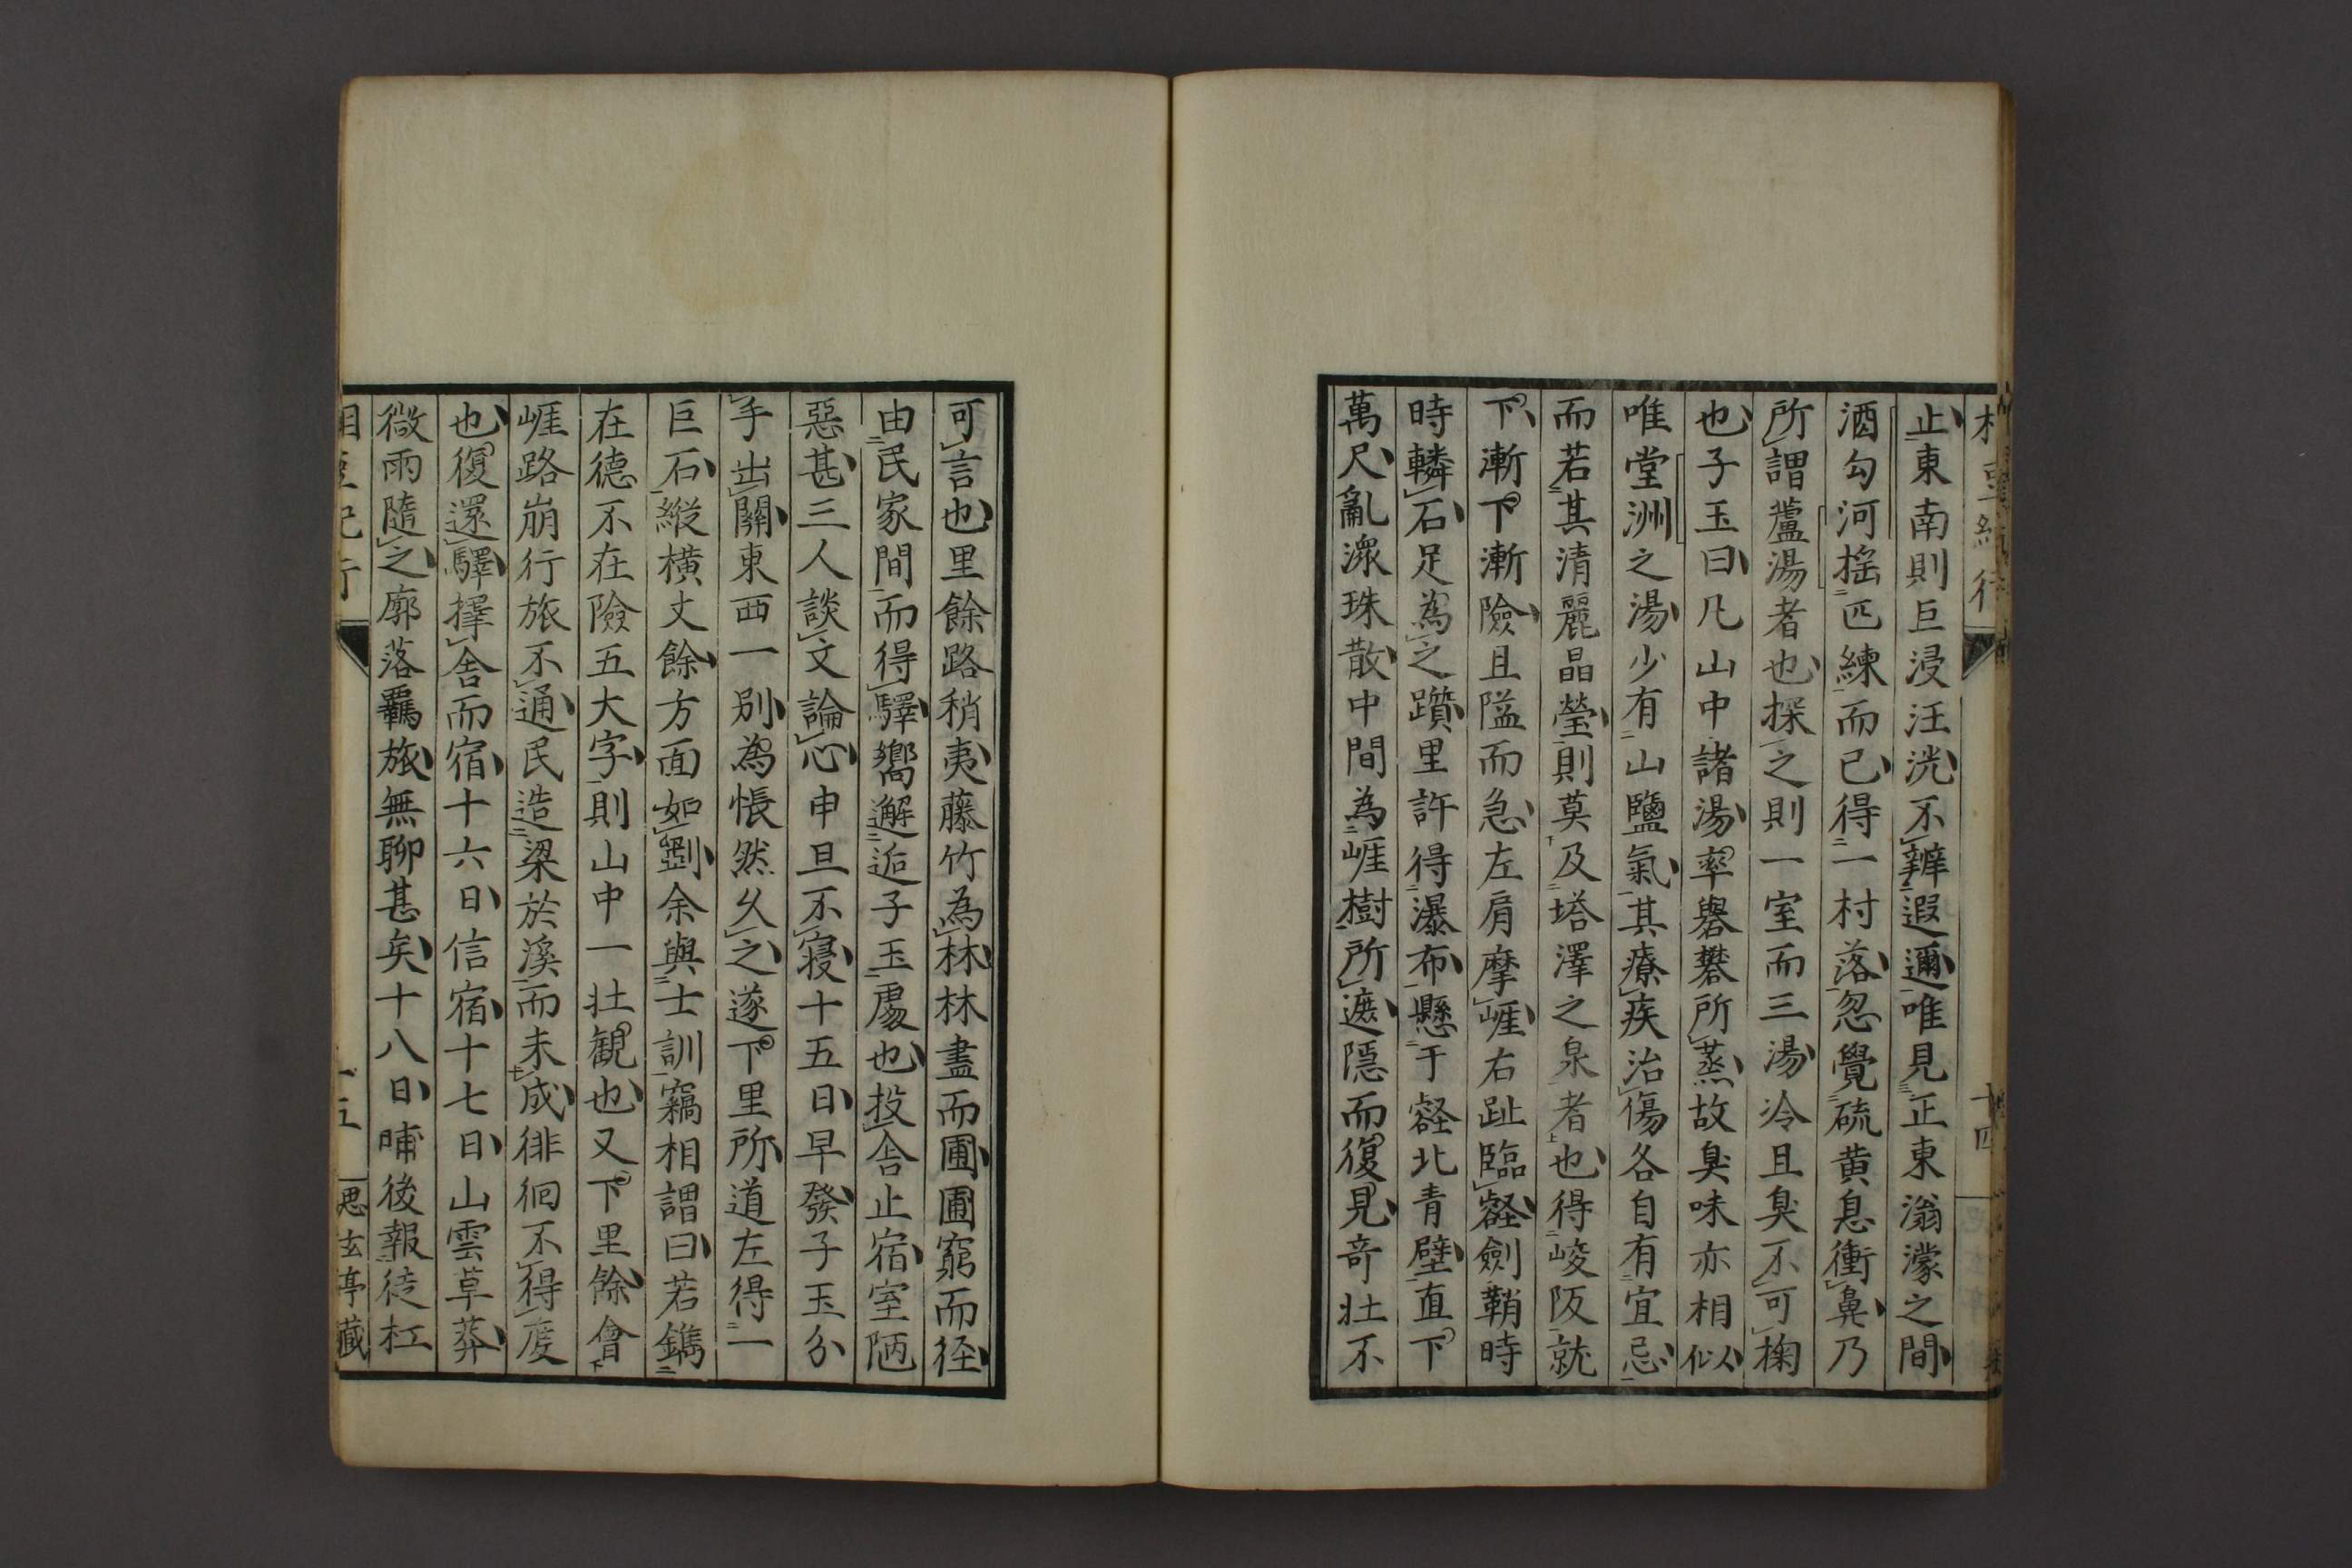 止東南則巨浸汪洸不辨遐邇唯見正東滃濛之間
酒勾河搖匹練而已得一村落忽覺硫黄息衝鼻乃
所謂蘆湯者也探之則一室而三湯冷且臭不可掬
也子玉曰凡山中諸湯率礜礬所蒸故臭味亦相似
唯堂洲之湯少有山鹽氣其療疾治傷各自有宜忌
而若其清麗晶瑩則莫及塔澤之泉者也得峻阪就
下漸下漸險且隘而急左肩摩崕右趾臨壑劍鞘時
時轔石足為之躓里許得瀑布懸于壑北青壁直下
萬尺亂瀠珠散中間為崕樹所遮隱而復見奇壯不
可言也里餘路稍夷藤竹為林林盡而圃圃窮而径
由民家間而得驛嚮邂逅子玉處也投舎止宿室陋
惡甚三人談文論心申旦不寝十五日早發子玉分
手出關東西一別為悵然久之遂下里所道左得一
巨石縱横丈餘方面如劉余與士訓竊相謂曰若鐫
在德不在險五大字則山中一壯観也又下里餘會
崕路崩行旅不通民造梁於溪而未成徘徊不得度
也復還驛擇舎而宿十六日信宿十七日山雲草莽
微雨隨之廓落羈旅無聊甚矣十八日晡後報徒杠
思玄亭藏